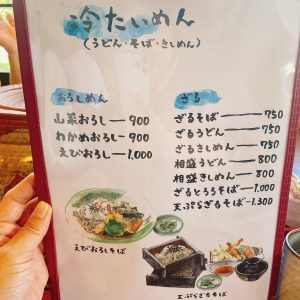 冷たいめん
(うどん・そば・きしめん)
おろしめん
山菜おろし ― 900
わかめおろし ― 900
えびおろし ― 1,000
ざる
ざるそば ― 750
ざるうどん ― 750
ざるきしめん ― 750
相盛うどん ― 800
相盛きしめん ― 800
ざるとろろそば ― 1,000
天ぷらざるそば ― 1,300
えびおろしそば
天ぷらざるそば